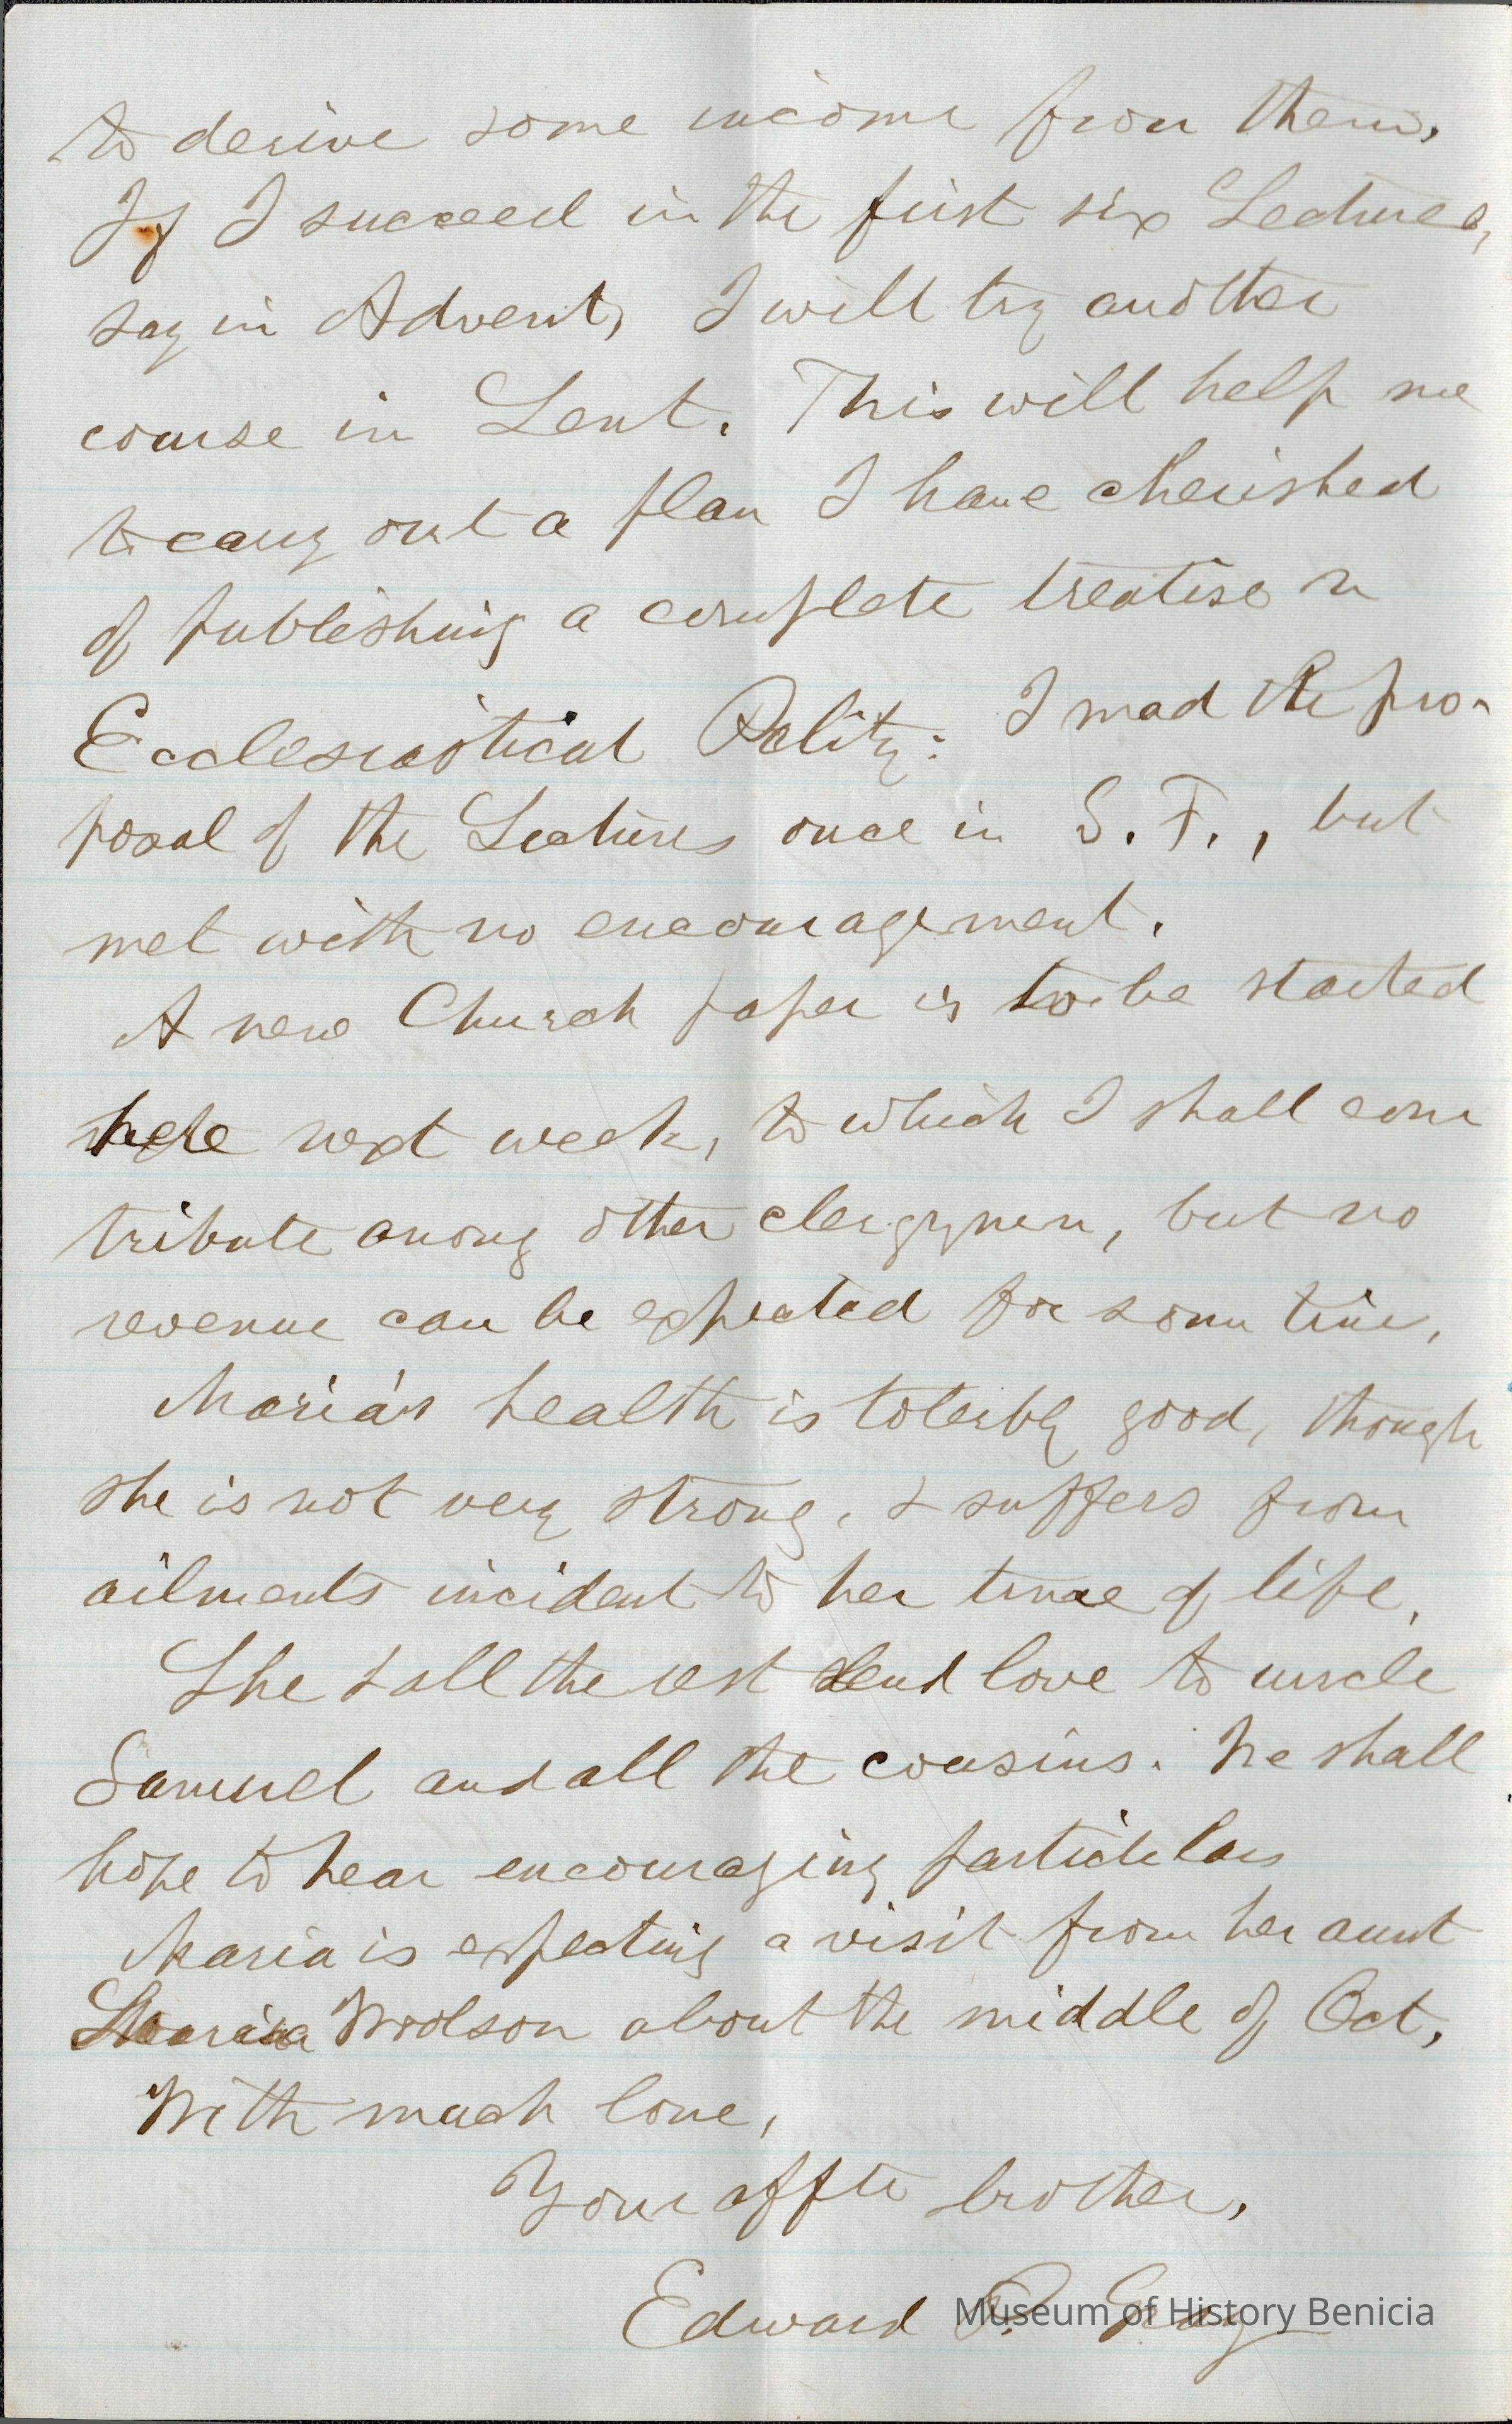 to derive some income from them.
If I succeed in the first six Lectures,
say in Advent, I will try another
course in Lent. This will help me
to carry out a plan I have cherished
of publishing a complete treatise on
Ecclesiastical Polity: I mad the pro-
posal of the Lectures once in S. F., but
met with no encouragement.
A new Church paper is to be started
here next week, to which I shall con
tribute among other clergymen, but no
revenue can be expected for some time,
Maria's health is tolerbly good, though
she is not very strong, & suffers from
ailments incident to her time of life.
She & all the rest send love to uncle
Samuel and all the cousins. We shall
hope to hear encouraging particulars
Maria is expecting a visit from her aunt
Woolson about the middle of Oct,
With much love,
Your affte brother,
Edward P. Gray
Museum of History Benicia